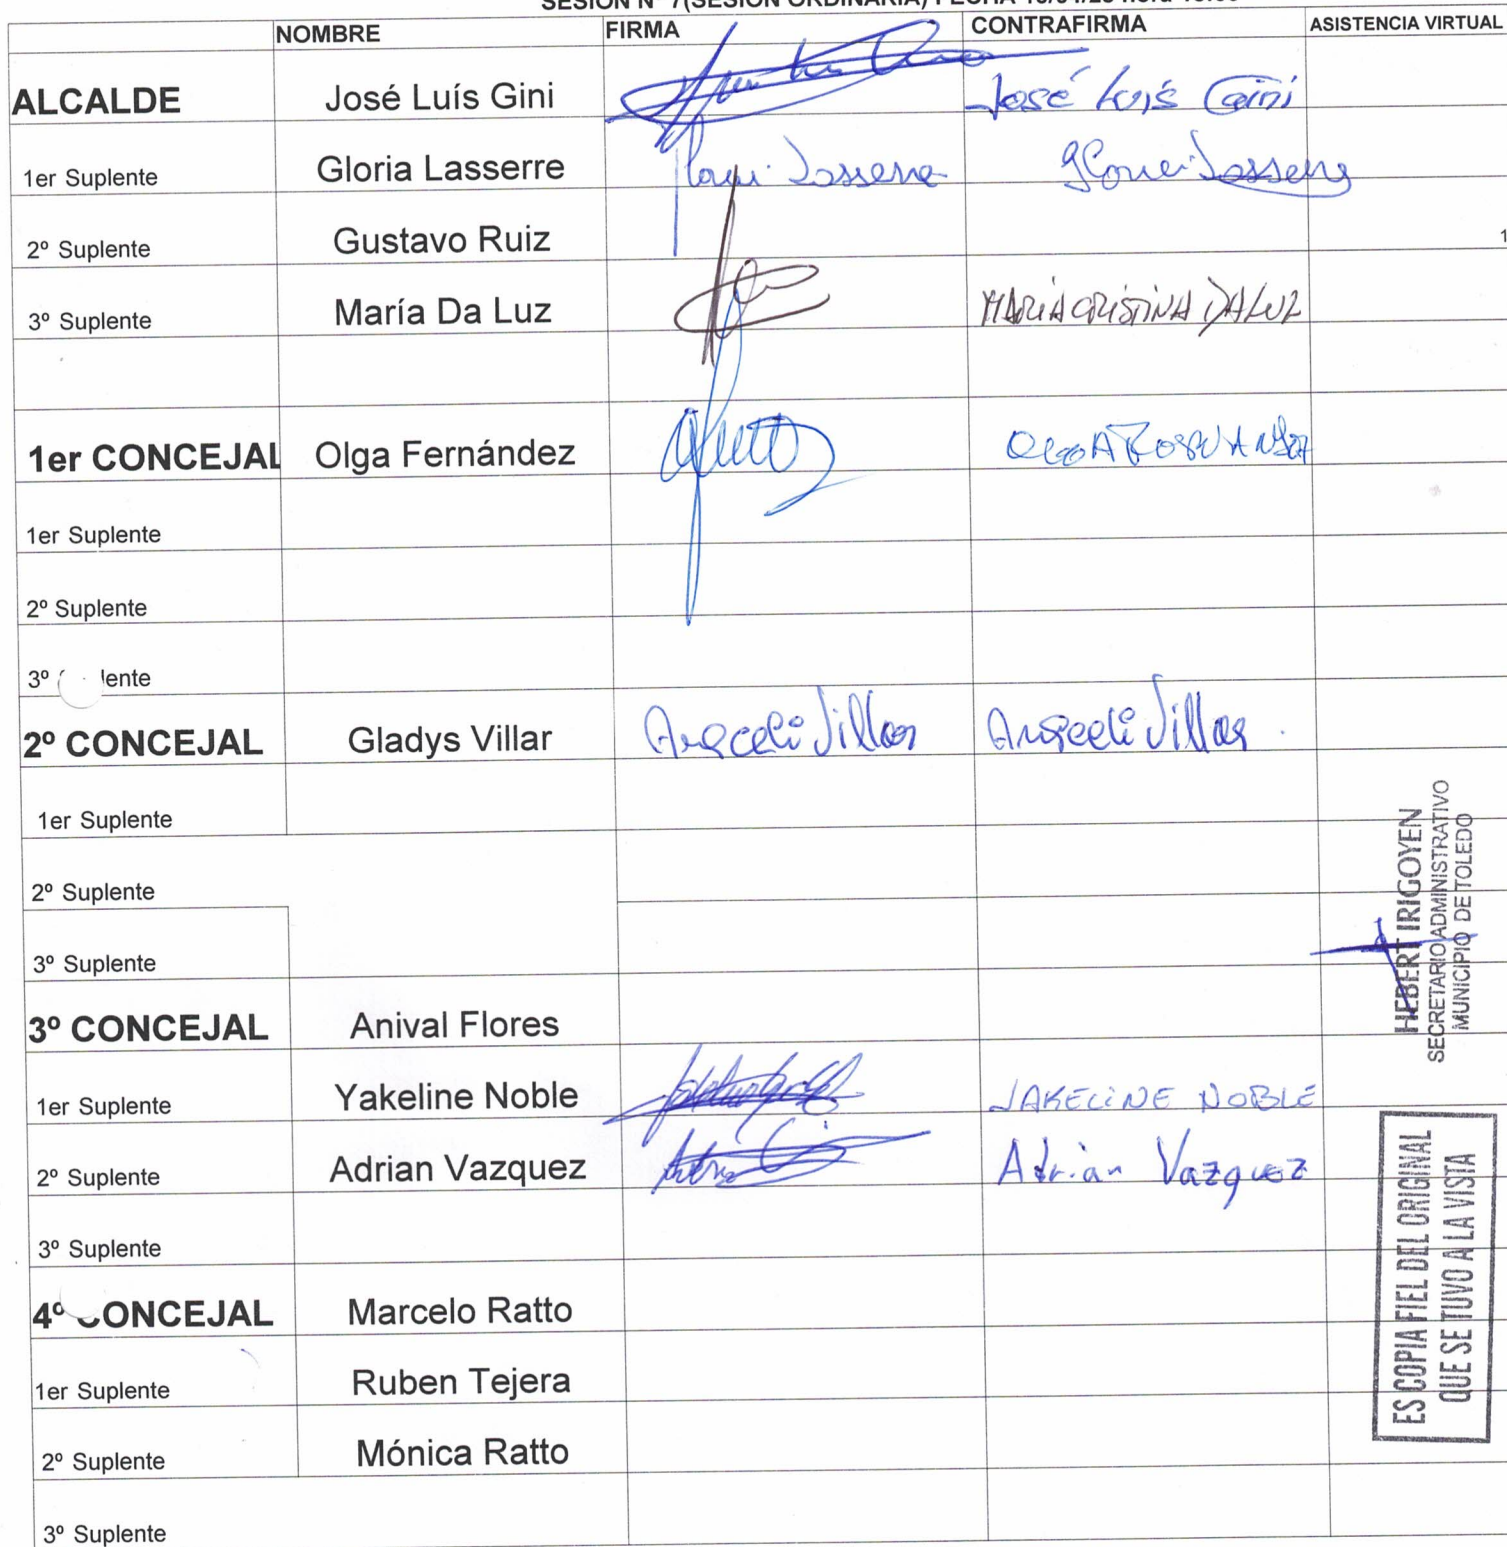 NOMBRE FIRMA CONTRAFIRMA ASISTENCIA VIRTUAL
ALCALDE José Luís Gini José Luis Gini
1er Suplente Gloria Lasserre
2º Suplente Gustavo Ruiz 1
3º Suplente María Da Luz MARIA CRISTINA DA LUZ
1er CONCEJAL Olga Fernández
1er Suplente
2º Suplente
3º lente
2º CONCEJAL Gladys Villar Araceli Villar Araceli Villar
1er Suplente
2º Suplente
3º Suplente
3º CONCEJAL Anival Flores
1er Suplente Yakeline Noble JAKELINE NOBLE
2º Suplente Adrian Vazquez Adrian Vazquez
3º Suplente
4º CONCEJAL Marcelo Ratto
1er Suplente Ruben Tejera
2º Suplente Mónica Ratto
3º Suplente
HEBERT IRIGOYEN
SECRETARIO ADMINISTRATIVO
MUNICIPIO DE TOLEDO
ES COPIA FIEL DEL ORIGINAL
QUE SE TUVO A LA VISTA